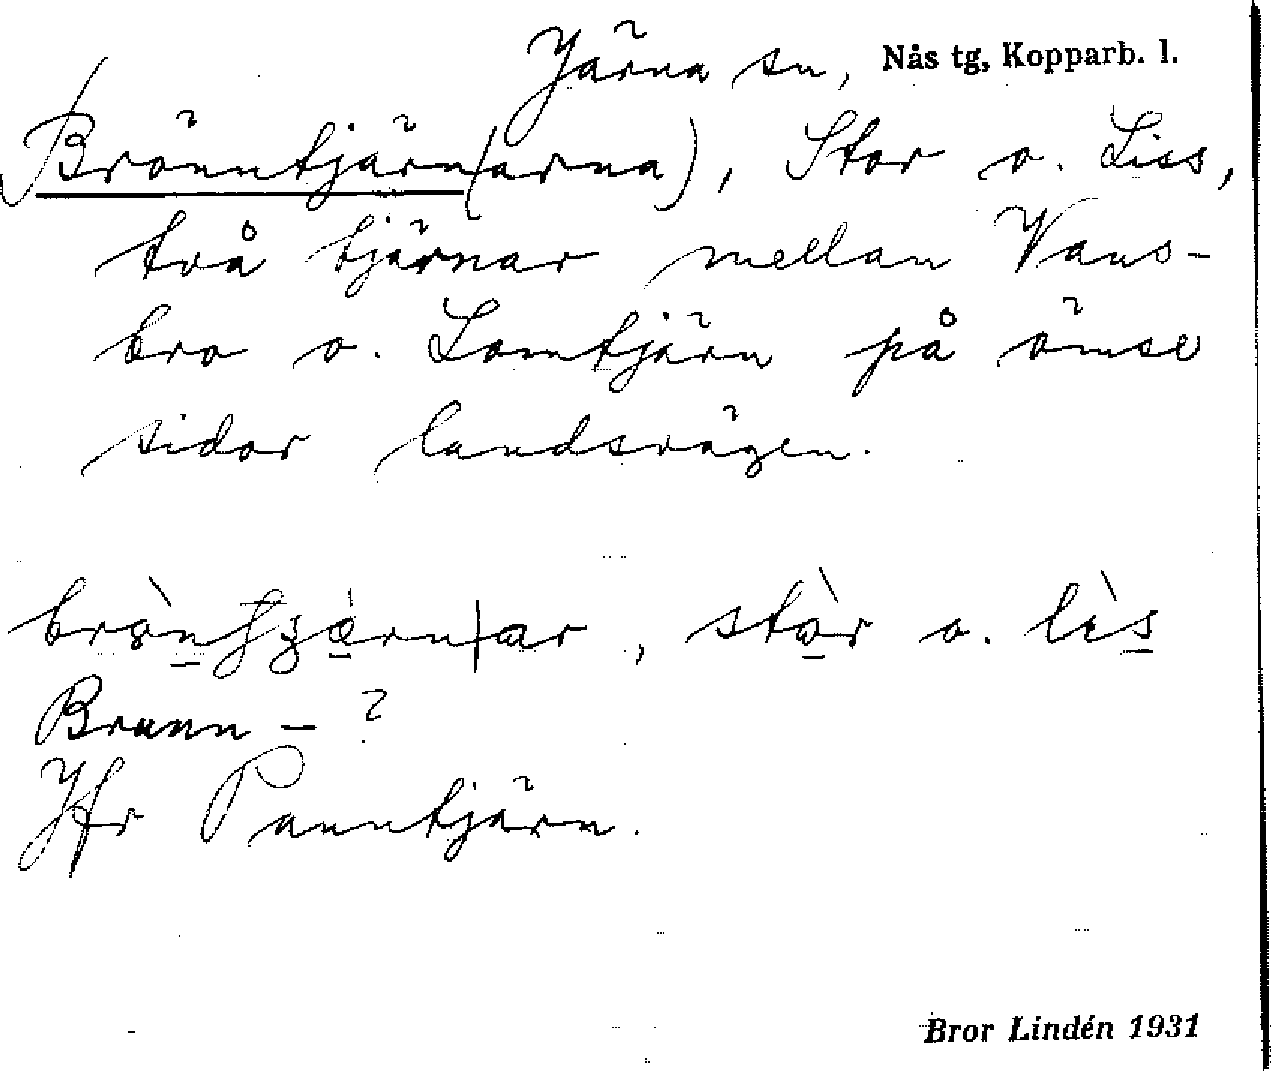 Järna sn, Nås tg, Kopparb. l.
Brönntjärn(arna), Stor o. Liss,
två tjärnar mellan Vans-
bro o. Lomtjärn på ömse
sidor landsvägen.
stòr o. lìs
Brunn - ?
Jfr Panntjärn.
Bror Lindén 1931